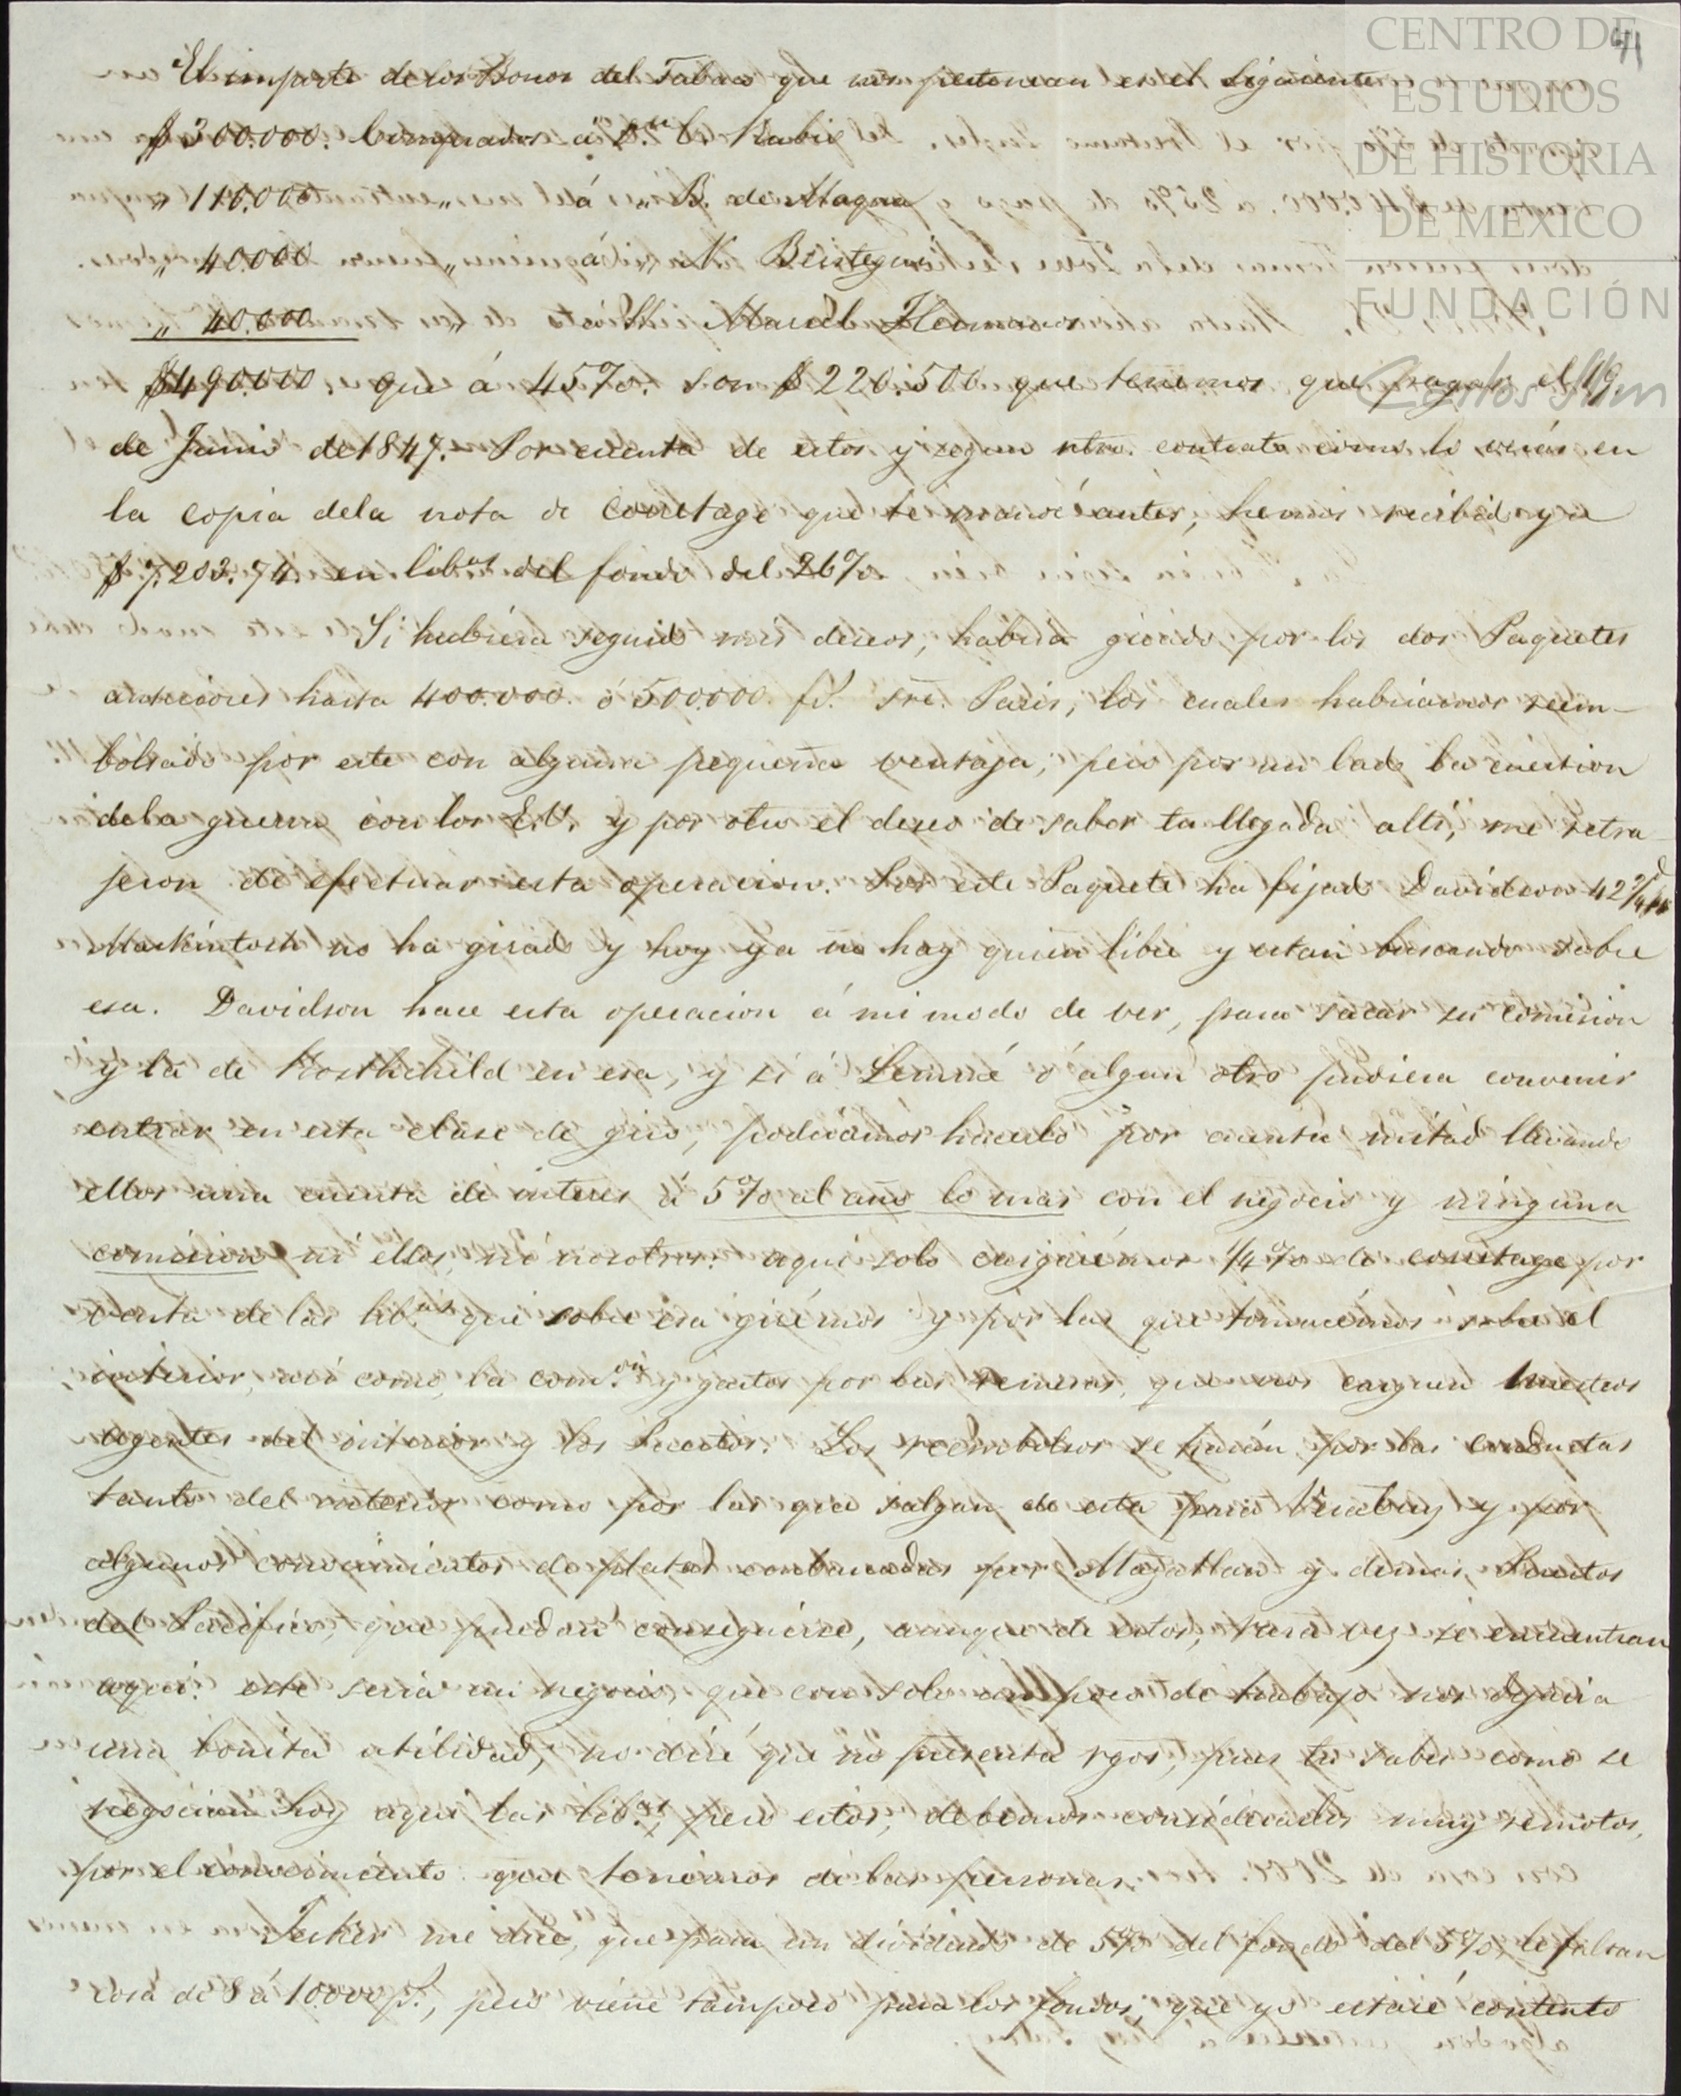 El importe de los Bonos del Tabaco que nos pertenecen es el siguiente
$ 300.000. Comprados á D.n C. Rubio
„ 110.000 „ á „ B. de Maqua
„ 40.000 „ á „ N. Beistegui
„ 40.000 „ Sh. Manuel Hermanos
$490.000. que á 45%. son $ 220.500 que tenemos que pagar el 19.
de Junio de 1847.- Por cuenta de estos y segun ntro. contrato como lo verás en
la copia dela nota de corretage que te mandé antes, hemos recibido ya
$ 7.203.74. en lib.as del fondo del 26%
Si hubiera seguido mis deseos, habria girado por los dos Paquetes
anteriores hasta 400.000. ó 500.000. fs. sre. Paris, los cuales habriamos reem-
bolsado por este con alguna pequeña ventaja; pero por un lado la cuestion
dela guerra con los E.U. y por otro el deseo de saber tu llegada allí, me retra-
jeron de efectuar esta operacion. Por este Paquete ha fijado Davidson 42
Mackintosh no ha girado y hoy ya no hay quien libre y estan buscando sobre
esa. Davidson hace esta operacion á mi modo de ver, para sacar su comision
y la de Rosthchild en esa, y si á Lemmé ó algun otro pudiera convenir
entrar en esta clase de giro, podriamos hacerlo por cuenta mitad llevando
ellos una cuenta de interes á 5% al año lo mas con el negocio y ninguna
comision ni ellos, ni nosotros: aqui solo cargaremos 1/4% de corretage por
venta de las lib.as que sobre esa girémos y por las que tomarémos sobre el
interior, así como la com.on y gastos por las remesas, que nos carguen nuestros
agentes del interior y los Puertos. Los reembolsos se harán por las conductas
tanto del interior como por las que salgan de esta para Veracruz y por
algunos conocimientos de platas embarcadas por Mazatlan y demas Puertos
del Pacifico, que puedan conseguirse, aunque de estos, rara vez se encuentran
aqui: este seria un negocio, que con solo un poco de trabajo nos dejaria
una bonita utilidad, no diré que no presenta rgos, pues tu sabes como se
negocian hoy aqui las lib.as, pero estos, debemos considerarlos muy remotos,
por el conocimiento que tenemos de las personas.
Jecker me dice, que para un dividendo de 5% del fondo del 5%, le faltan
cosa de 8 á 10.000 ps., pero viene tampoco para los fondos, que yo estaré contento
CENTRO DE
ESTUDIOS
DE HISTORIA
DE MEXICO
FUNDACIÓN
Carlos Slim